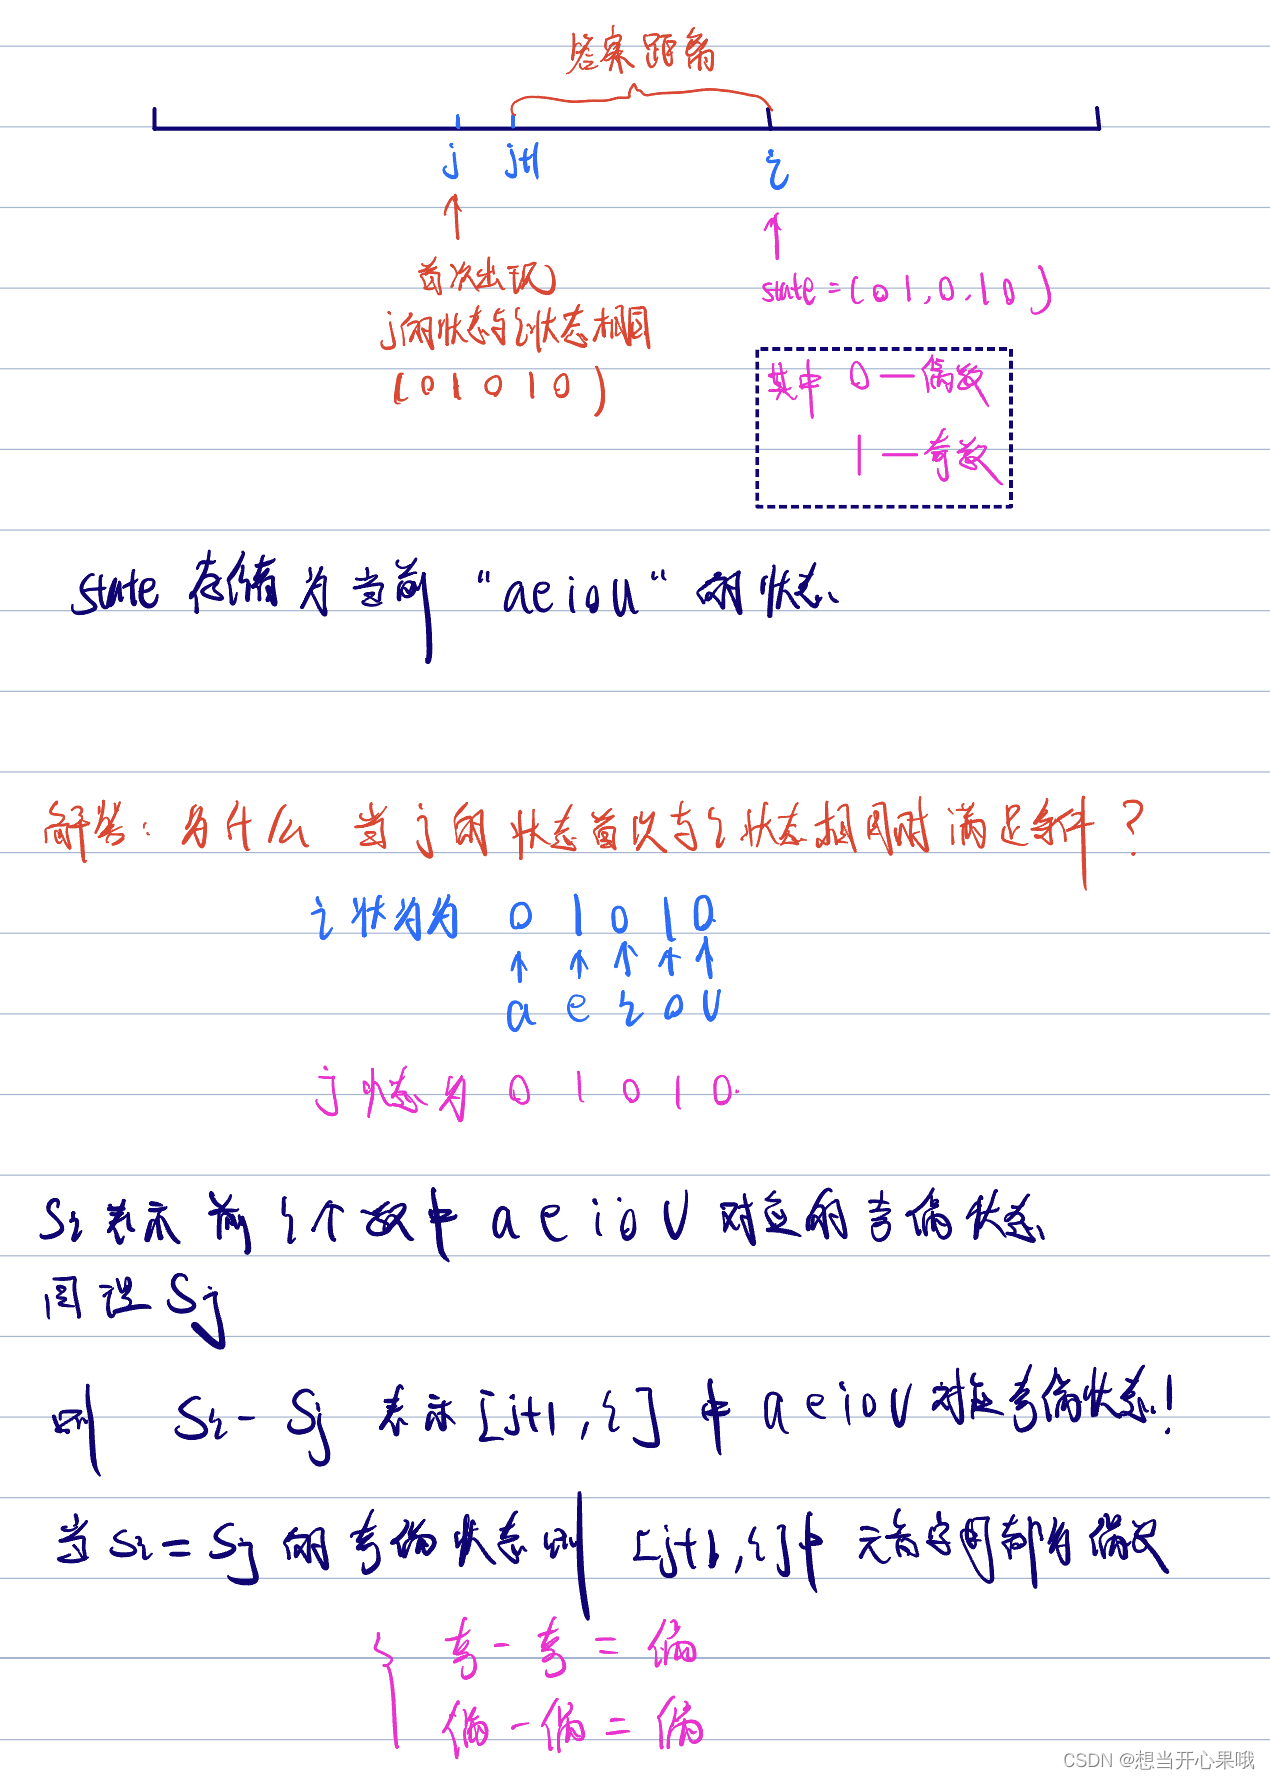 答案距离
j j+1 i
首次出现
j的状态与i状态相同
(0 1 0 1 0)
state = (0 1, 0, 1 0)
其中 0 — 偶数
1 — 奇数
state 存储为当前 "aeiou" 的状态.
解答: 为什么 当 j 的 状态首次与 i 状态相同时 满足条件?
i 状为为 0 1 0 1 0
a e i o u
j 状态为 0 1 0 1 0.
Si 表示 前 i 个数中 a e i o u 对应的奇偶状态.
同理 Sj
则 Si - Sj 表示 [j+1, i] 中 a e i o u 对应奇偶状态!
当 Si = Sj 的奇偶状态则 [j+1, i]中 元音字母都为偶数
奇 - 奇 = 偶
偶 - 偶 = 偶
CSDN @想当开心果哦